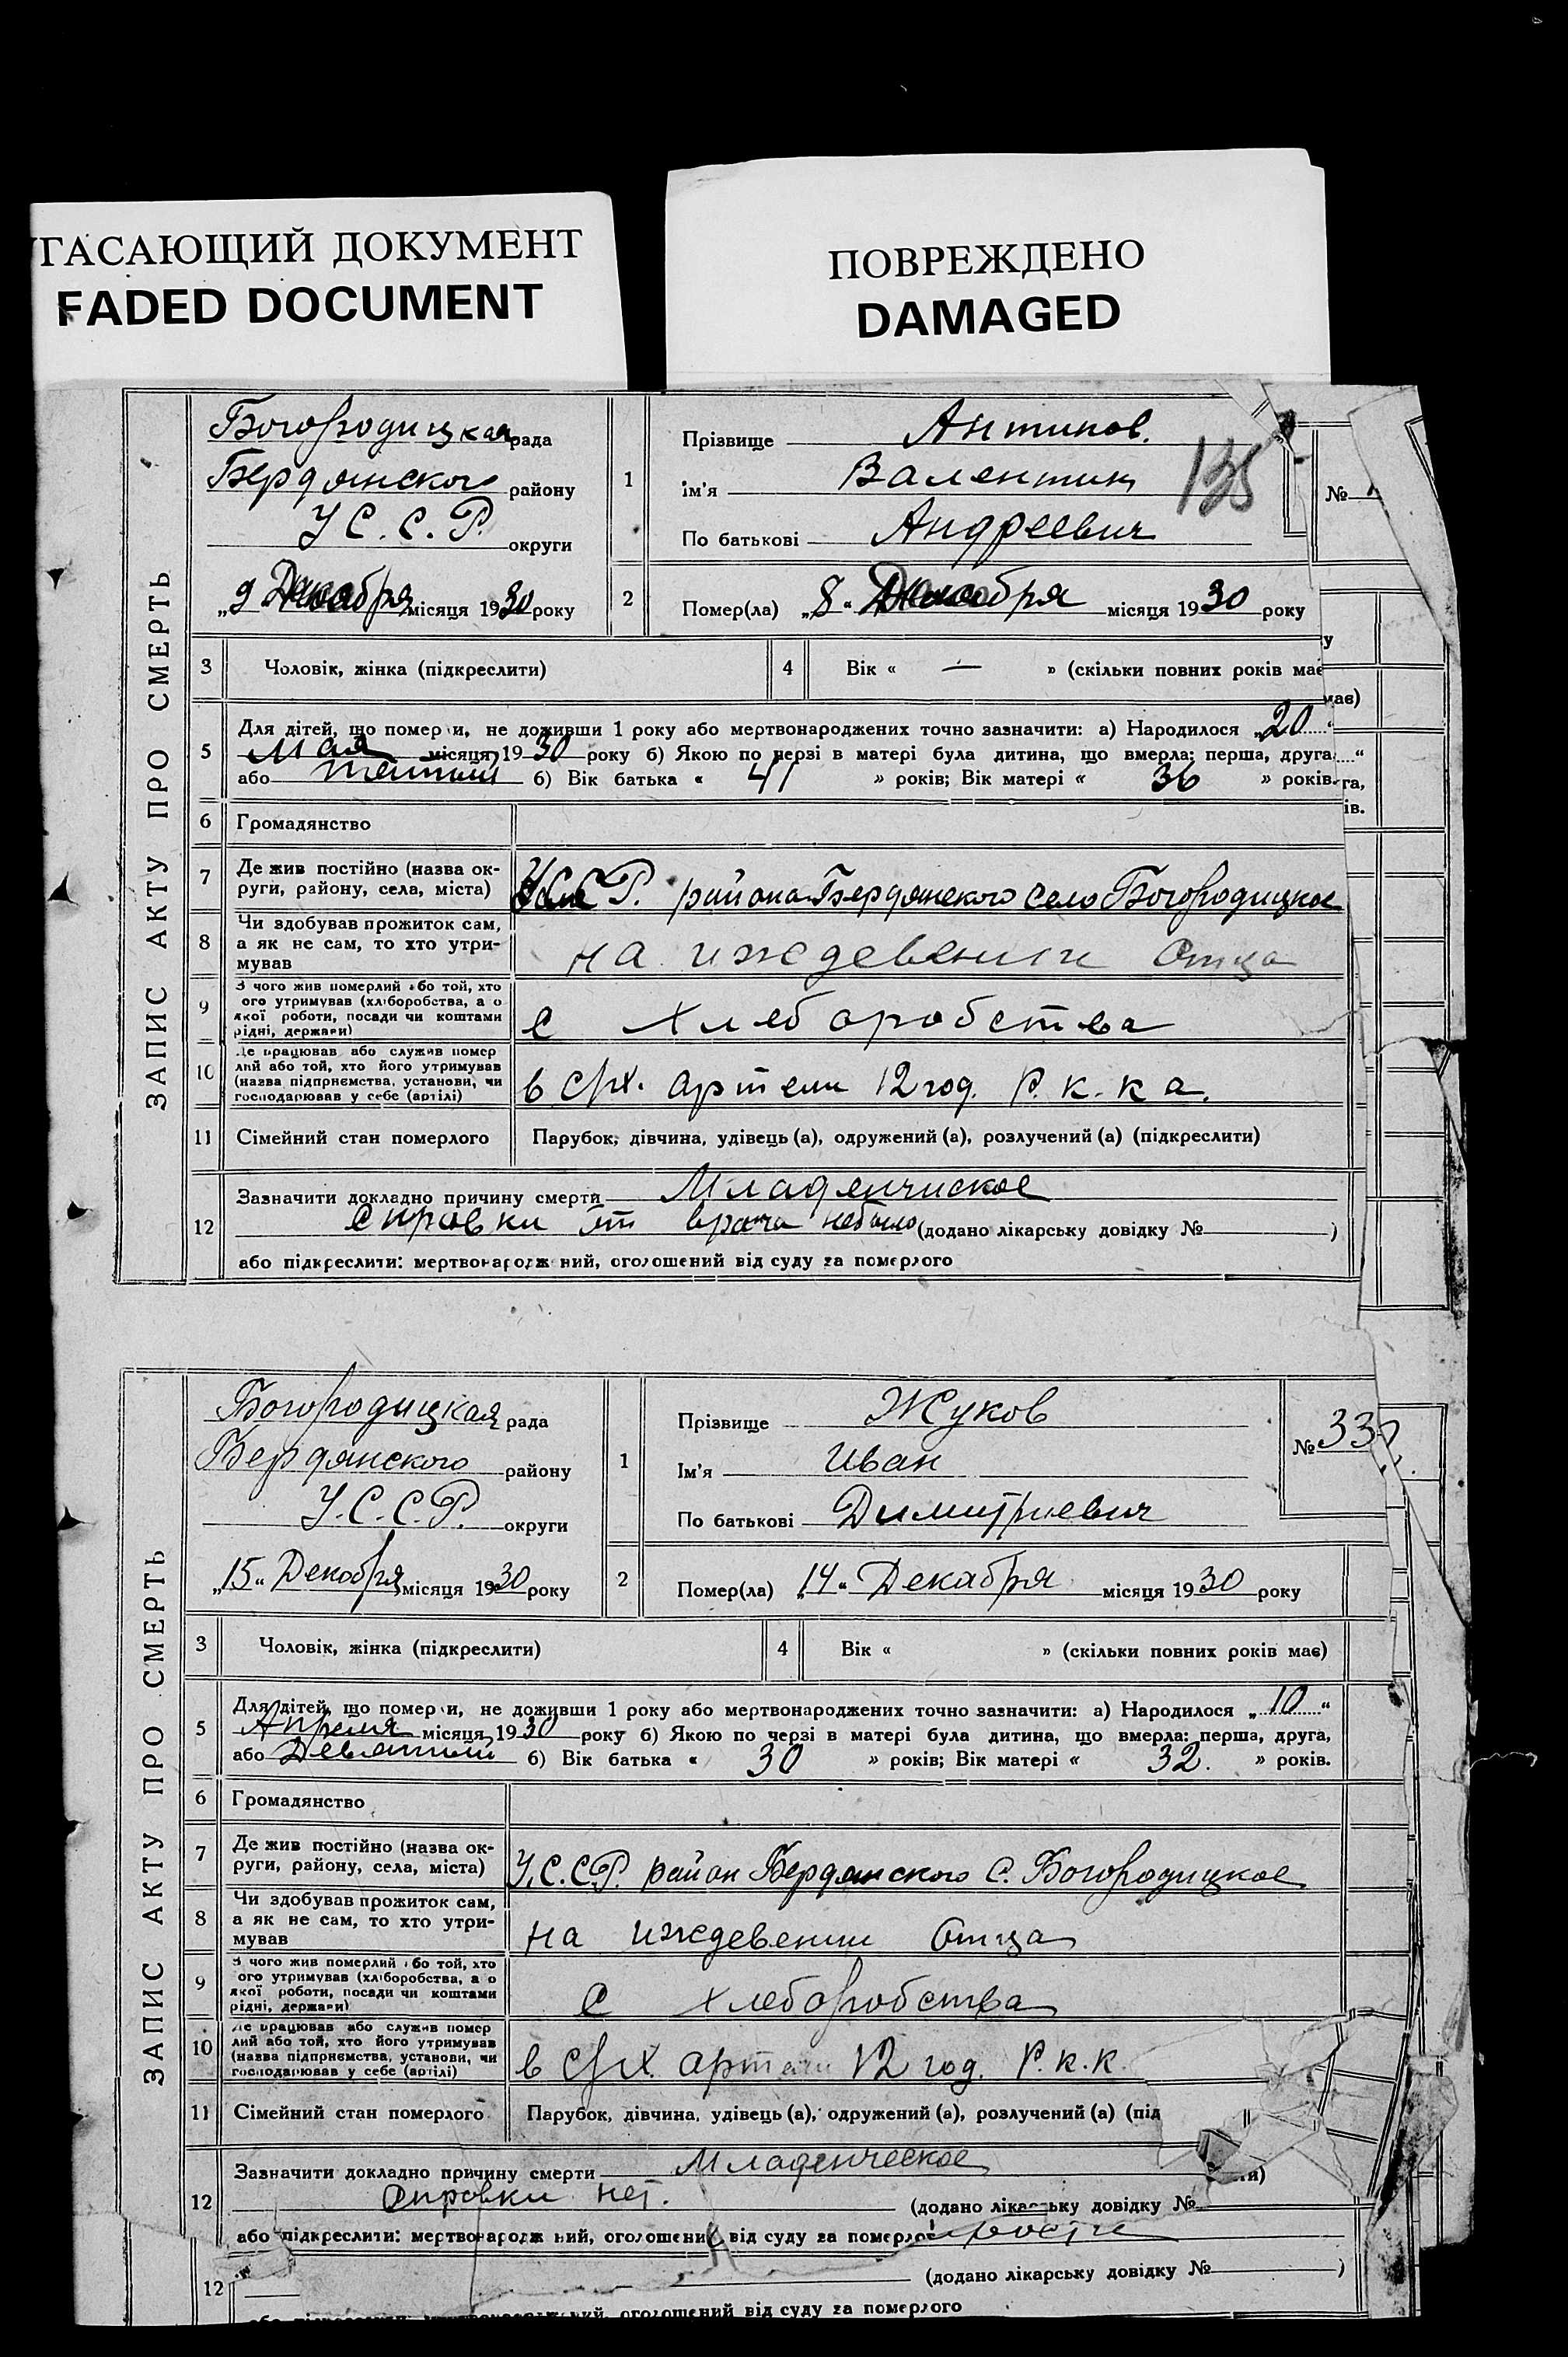 УГАСАЮЩИЙ ДОКУМЕНТ
FADED DOCUMENT
ПОВРЕЖДЕНО
DAMAGED
ЗАПИС АКТУ ПРО СМЕРТЬ
Богородицкая рада
Бердянского району
У С. С. Р. округи
„9 Декабря місяця 1930 року
1
Прізвище Антипов.
ім'я Валентин
По батькові Андреевич
135
№
2
Помер(ла) „8“ Декабря місяця 1930 року
3 Чоловік, жінка (підкреслити)
4 Вік « — » (скільки повних років має
має)
5 Для дітей, що померли, не доживши 1 року або мертвонароджених точно зазначити: а) Народилося „20“
Мая місяця 1930 року б) Якою по черзі в матері була дитина, що вмерла: перша, друга
або пятый б) Вік батька « 41 » років; Вік матері « 36 » років.
6 Громадянство
7 Де жив постійно (назва округи, району, села, міста) УССР. района Бердянского село Богородицкое
8 Чи здобував прожиток сам, а як не сам, то хто утримував
на иждевении Отца
9 З чого жив померлий або той, хто його утримував (хліборобства, а о якої роботи, посади чи коштами рідні, держави)
с хлеборобства
10 Де працював або служив помер лий або той, хто його утримував (назва підприємства, установи, чи господарював у себе (артілі)
в с/х. артели 12 год. Р. К. К. А.
11 Сімейний стан померлого Парубок, дівчина, удівець (а), одружений (а), розлучений (а) (підкреслити)
12 Зазначити докладно причину смерти Младенческое
Справки от врача небыло (додано лікарську довідку № )
або підкреслити: мертвонародж ний, оголошений від суду за померлого
ЗАПИС АКТУ ПРО СМЕРТЬ
Богородицкая рада
Бердянского району
У.С.С.Р. округи
„15“ Декабря місяця 1930 року
1
Прізвище Жуков
Ім'я Иван
По батькові Димитриевич
№ 332
2
Помер(ла) „14“ Декабря місяця 1930 року
3 Чоловік, жінка (підкреслити)
4 Вік « » (скільки повних років має)
5 Для дітей, що померли, не доживши 1 року або мертвонароджених точно зазначити: а) Народилося „10“
Апреля місяця 1930 року б) Якою по черзі в матері була дитина, що вмерла: перша, друга,
або Девятый б) Вік батька « 30 » років; Вік матері « 32. » років.
6 Громадянство
7 Де жив постійно (назва округи, району, села, міста) У.С.С.Р. район Бердянского С. Богородицкое
8 Чи здобував прожиток сам, а як не сам, то хто утримував
на иждевении Отца
9 З чого жив померлий або той, хто його утримував (хліборобства, а о якої роботи, посади чи коштами рідні, держави)
с хлеборобства
10 Де працював або служив помер лий або той, хто його утримував (назва підприємства, установи, чи господарював у себе (артілі)
в с/х. артели 12 год. Р.К.К.
11 Сімейний стан померлого Парубок, дівчина, удівець (а), одружений (а), розлучений (а) (під
12 Зазначити докладно причину смерти Младенческое
Справки нет. (додано лікарську довідку №
або підкреслити: мертвонародж ний, оголошений від суду за померло
12 (додано лікарську довідку № )
оголошений від суду за померлого